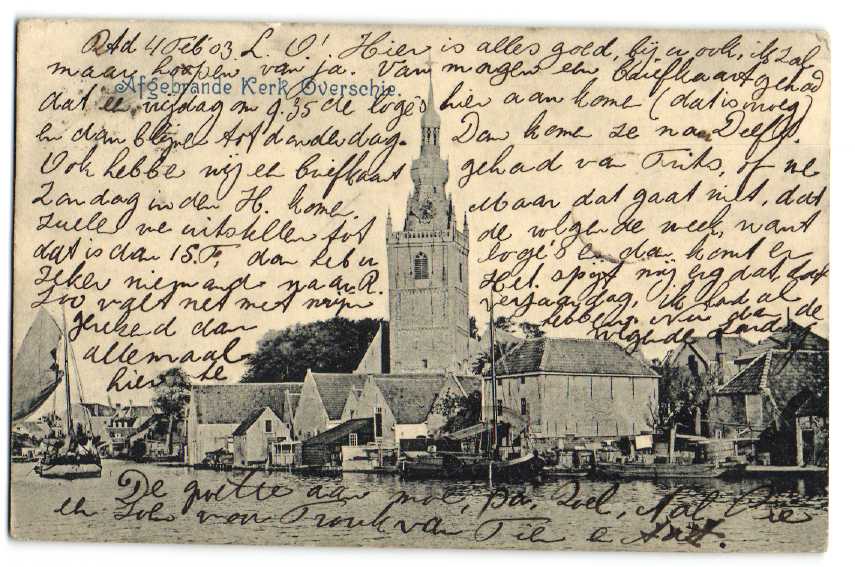 Rtd 4 Feb '03 L. V! Hier is alles goed, bij u ook, ik zal
maar hoopen van ja. Van morgen een briefkaart gehad
Afgebrande Kerk Overschie.
dat er vrijdag om 9.35 de logé's hier aan kome (dat is vroeg)
en dan blijve tot donderdag. Dan kome ze na Delft.
Ook hebbe wij een briefkaart gehad van Frits, of we
Zondag in den H. kome. Maar dat gaat niet, dat
zulle we uitstellen tot de volgende week, want
dat is dan 15 F, dan heb u logé's en dan komt er
zeker niemand naar R. Het spijt mij erg dat, dat
zoo valt net met mijn verjaardag, ik had al
gereked dan hebbe we dan de
allemaal
hier te
De groette aan moe, pa, Nal Pie
en van Tronk van Fie e Ant.